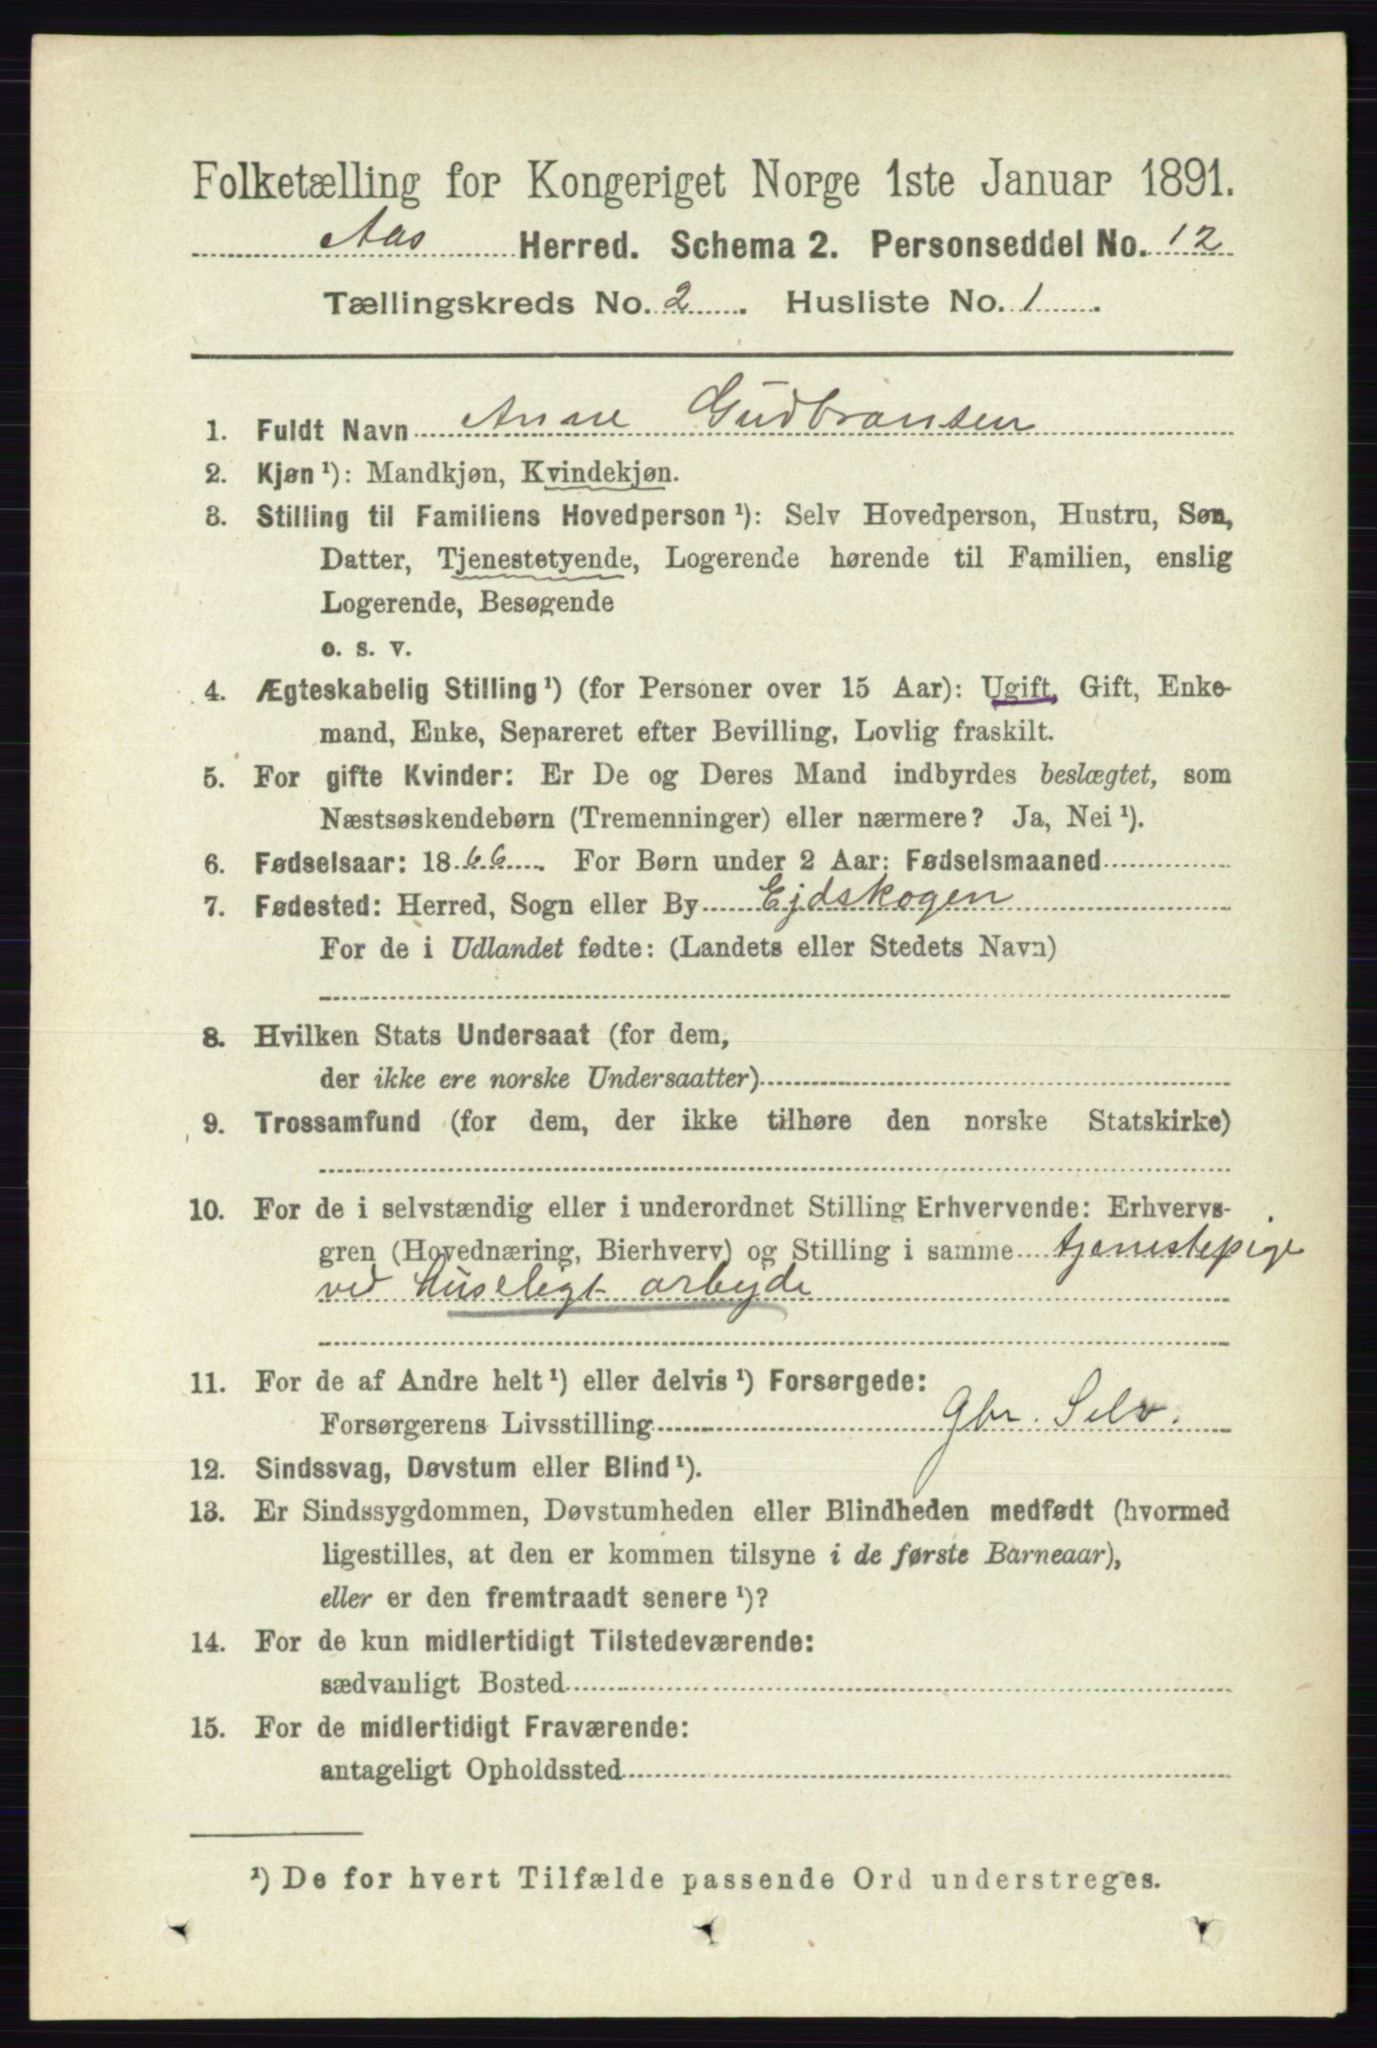 Folketælling for Kongeriget Norge 1ste Januar 1891.
Aas Herred. Schema 2. Personseddel No. 12
Tællingskreds No. 2. Husliste No. 1.
1. Fuldt Navn Anne Gudbransen
2. Kjøn ¹): Mandkjøn, Kvindekjøn.
3. Stilling til Familiens Hovedperson ¹): Selv Hovedperson, Hustru, Søn,
Datter, Tjenestetyende, Logerende hørende til Familien, enslig
Logerende, Besøgende
o. s. v.
4. Ægteskabelig Stilling ¹) (for Personer over 15 Aar): Ugift, Gift, Enke-
mand, Enke, Separeret efter Bevilling, Lovlig fraskilt.
5. For gifte Kvinder: Er De og Deres Mand indbyrdes beslægtet, som
Næstsøskendebørn (Tremenninger) eller nærmere? Ja, Nei ¹).
6. Fødselsaar: 1866. For Børn under 2 Aar: Fødselsmaaned
7. Fødested: Herred, Sogn eller By Ejdskogen
For de i Udlandet fødte: (Landets eller Stedets Navn)
8. Hvilken Stats Undersaat (for dem,
der ikke ere norske Undersaatter)
9. Trossamfund (for dem, der ikke tilhøre den norske Statskirke)
10. For de i selvstændig eller i underordnet Stilling Erhvervende: Erhvervs-
gren (Hovednæring, Bierhverv) og Stilling i samme tjenestepige
ved Huseligt arbejde
11. For de af Andre helt ¹) eller delvis ¹) Forsørgede:
Forsørgerens Livsstilling Gbr. Selv.
12. Sindssvag, Døvstum eller Blind ¹).
13. Er Sindssygdommen, Døvstumheden eller Blindheden medfødt (hvormed
ligestilles, at den er kommen tilsyne i de første Barneaar),
eller er den fremtraadt senere ¹)?
14. For de kun midlertidigt Tilstedeværende:
sædvanligt Bosted
15. For de midlertidigt Fraværende:
antageligt Opholdssted
¹) De for hvert Tilfælde passende Ord understreges.